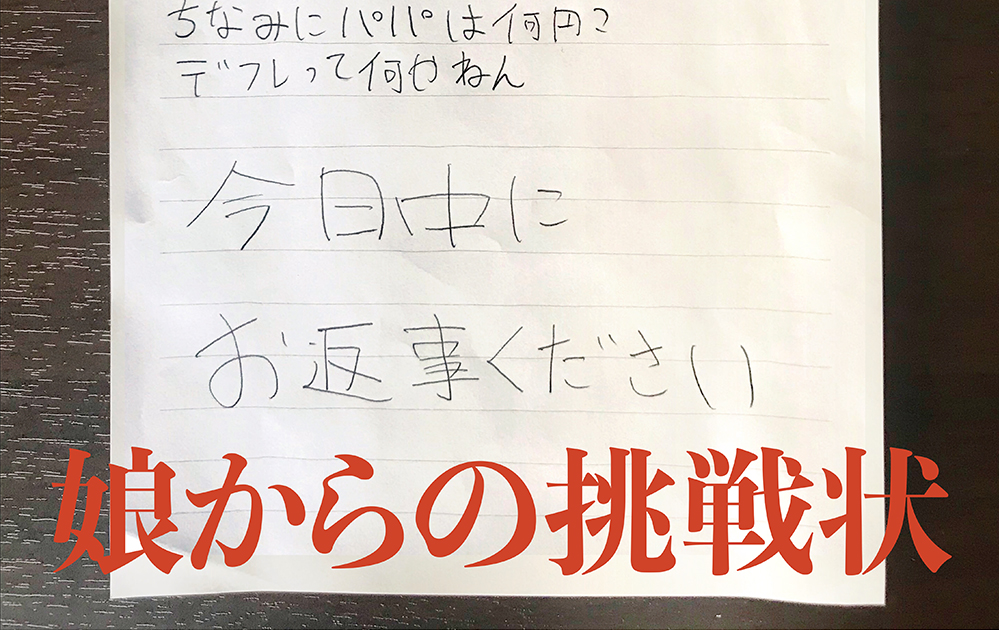 ちなみにパパは何円？
デフレって何やねん
今日中に
お返事ください
娘からの挑戦状